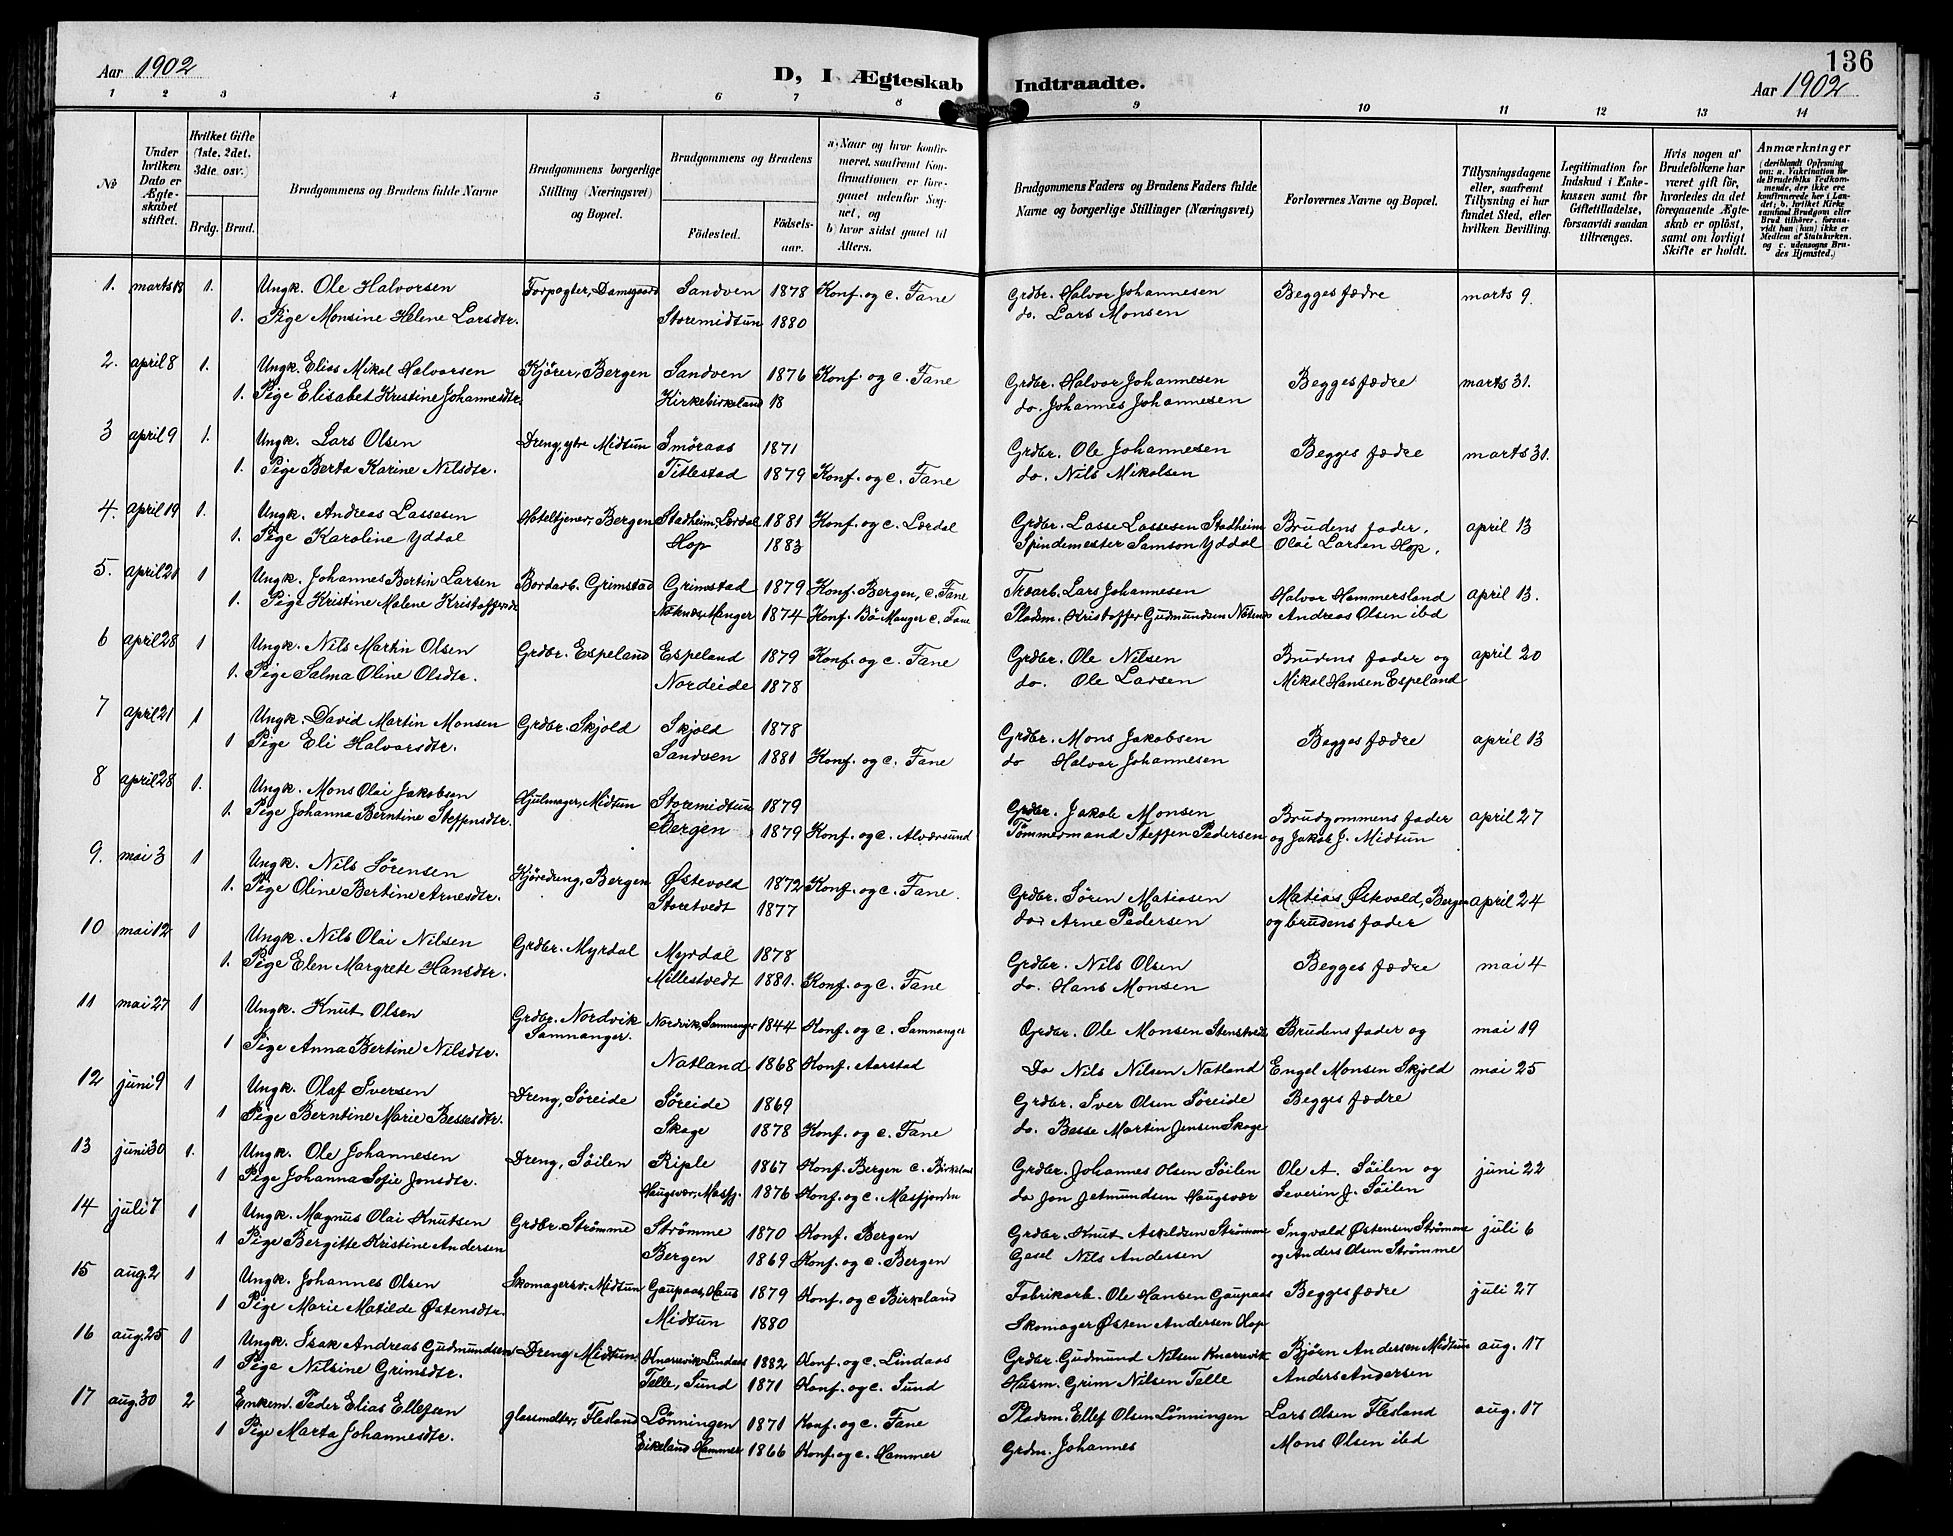 136
Aar 1902 D, I Ægteskab Indtraadte. Aar 1902
1 2 3 4 5 6 7 8 9 10 11 12 13 14
№
Under hvilken Dato er Ægteskabet stiftet.
Hvilket Gifte (1ste, 2det, 3die osv.)
Brdg. Brud.
Brudgommens og Brudens fulde Navne
Brudgommens borgerlige Stilling (Næringsvei) og Bopæl.
Brudgommens og Brudens
Födested. Födselsaar.
a) Naar og hvor konfirmeret, saafremt Konfirmationen er foregaaet udenfor Sognet, og b) hvor sidst gaaet til Alters.
Brudgommens Faders og Brudens Faders fulde Navne og borgerlige Stillinger (Næringsvei)
Forlovernes Navne og Bopæl.
Tillysningsdagene eller, saafremt Tillysning ei har fundet Sted, efter hvilken Bevilling.
Legitimation for Indskud i Enkekassen samt for Giftetilladelse, forsaavidt saadan tiltrænges.
Hvis nogen af Brudefolkene har været gift för, hvorledes da det foregaaende Ægteskab er oplöst, samt om lovligt Skifte er holdt.
Anmærkninger (deriblandt Oplysning om: a. Vakcination for de Brudefolks Vedkommende, der ikke ere konfirmerede her i Landet; b. hvilket Kirkesamfund Brudgom eller Brud tilhörer, forsaavidt han (hun) ikke er Medlem af Statskirken. og c. udensogns Brudes Hjemsted.)
1. marts 18 1. Ungk. Ole Halvorsen Forpagter, Damsgaard Sandven 1878 Konf. og c. Fane Grdbr. Halvor Johannesen Begges fædre marts 9.
1. Pige Monsine Helene Larsdtr. Storemidtun 1880 do. Lars Monsen
2. april 8 1. Ungk. Elias Mikal Halvorsen Kjörer, Bergen Sandven 1876 Konf. og c. Fane Grdbr. Halvor Johannesen Begges fædre marts 31.
1. Pige Elisabet Kristine Johannesdtr. Kirkebirkeland 18 do. Johannes Johannesen
3 april 9 1. Ungk. Lars Olsen Dreng, ytre Midtun Smöraas 1871 Grdbr. Ole Johannesen Begges fædre marts 31.
1. Pige Berta Karine Nilsdtr. Titlestad 1879 Konf. og c. Fane do. Nils Mikalsen
4. april 19 1. Ungk. Andreas Lassesen Hoteltjener, Bergen Stadheim, Lærdal 1881 Konf. og c. Lærdal Grdbr. Lasse Lassesen Stadheim Brudens fader, april 13
1. Pige Karoline Yddal Hop 1883 Spindemester Samson Yddal Olai Larsen Hop.
5. april 21 1 Ungk. Johannes Bertin Larsen Bordarb. Grimstad Grimstad 1879 Konf. Bergen, c. Fane Træarb. Lars Johannesen Halvor Hammersland april 13.
1. Pige Kristine Malene Manger 1874 Konf. Bö Manger c. Fane Pladsm. Kristoffer Gudmundsen Andreas Olsen ibd
6 april 28 1 Ungk. Nils Martin Olsen Grdbr. Espeland Espeland 1879 Konf. og c. Fane Grdbr. Ole Nilsen Brudens fader og april 20
1. Pige Salma Oline Olsdtr. Nordeide 1878 do. Ole Larsen Mikal Hansen Espeland
7 april 21 1 Ungk. David Martin Monsen Grdbr. Skjold Skjold 1878 Grdbr. Mons Jakobsen Begges fædre april 13
1 Pige Eli Halvorsdtr. Sandven 1881 Konf. og c. Fane do Halvor Johannesen
8 april 28 1. Ungk. Mons Olai Jakobsen Hjulmager, Midtun Storemidtun 1879 Grdbr. Jakob Monsen Brudgommens fader april 27
1. Pige Johanna Berntine Steffensdtr. Bergen 1879 Konf. og c. Alværsund Tömmermand Steffen Pedersen og Jakob J. Midtun
9. mai 3 1 Ungk. Nils Sörensen Kjöredreng, Bergen Östevold 1872 Konf. og c. Fane. Grdbr. Sören Matiasen Matias Östevold, Bergen april 24
1. Pige Oline Bertine Arnesdtr. Storetvedt 1877 do Arne Pedersen og brudens fader
10 mai 12 1 Ungk. Nils Olai Nilsen Grdbr. Myrdal Myrdal 1878 Grdbr. Nils Olsen Begges fædre mai 4
1. Pige Elen Margrete Hansdtr. Millestvedt 1881. Konf. og c. Fane do. Hans Monsen
11 mai 27 1 Ungk. Knut Olsen Grdbr. Nordvik Samnanger. Nordvik, Samnanger 1844 Konf. og c. Samnanger Grdbr. Ole Monsen Brudens fader og mai 19
1 Pige Anna Bertine Nilsdtr. Natland 1868 Konf. Aarstad Do Nils Nilsen Natland Engel Monsen Skjold mai 25
12 juni 9 1 Ungk. Olaf Iversen Dreng, Söreide Söreide 1869 Grdbr. Iver Olsen Söreide Begges fædre
1 Pige Berntine Marie Bessesdtr. Skage 1878 Konf. og c. Fane do. Besse Martin Jensen Skage
13 juni 30 1. Ungk. Ole Johannesen Dreng, Söilen Riple 1867 Konf. Bergen c. Birkeland Grdbr. Johannes Olsen Söilen Ole A. Söilen og juni 22
1 Pige Johanna Sofie Jonsdtr. Haugsvær, Masfj. 1876 Konf. og c. Masfjorden do Jon Jetmundsen Haugsvær Severin J. Söilen
14 juli 7 1 Ungk. Magnus Olai Knutsen Grdbr. Strömme Strömme 1870 Konf. Bergen Grdbr. Knut Askeldsen Strömme Ingvald Östensen Strömme juli 6
1 Pige Bergitte Kristine Andersen Bergen 1869 Konf. og c. Bergen Gasel Nils Andersen og Anders Olsen Strömme
15 aug. 2 1 Ungk. Johannes Olsen Skomagersv. Midtun Gaupaas, Haus 1879 Konf. og c Birkeland Fabrikarb. Ole Hansen Gaupaas Begges fædre juli 27
1 Pige Marie Matilde Östensdtr. Midtun 1880 Skomager Östen Andersen Hop
16 aug. 25 1 Ungk. Isak Andreas Gudmundsen Dreng Midtun Knarrevik Lindaas 1882 Konf. og c. Lindaas Grdbr. Gudmund Nilsen Knarrevik Björn Andersen Midtun aug. 17
1 Pige Nilsine Grimsdtr. Telle, Sund 1871 Konf. og c. Sund Husm. Grim Nilsen Telle Anders Andersen
17 aug. 30 2 Enkem. Peder Elias Ellefsen Flesland Lönningen 1871 Konf. og c. Fane Pladsm. Ellef Olsen Lönningen Lars Olsen Flesland aug. 17
1 Pige Marta Johannesdtr. Eikeland Hammer 1866 Konf. og c. Hammer Grdm. Johannes Mons Olsen ibd